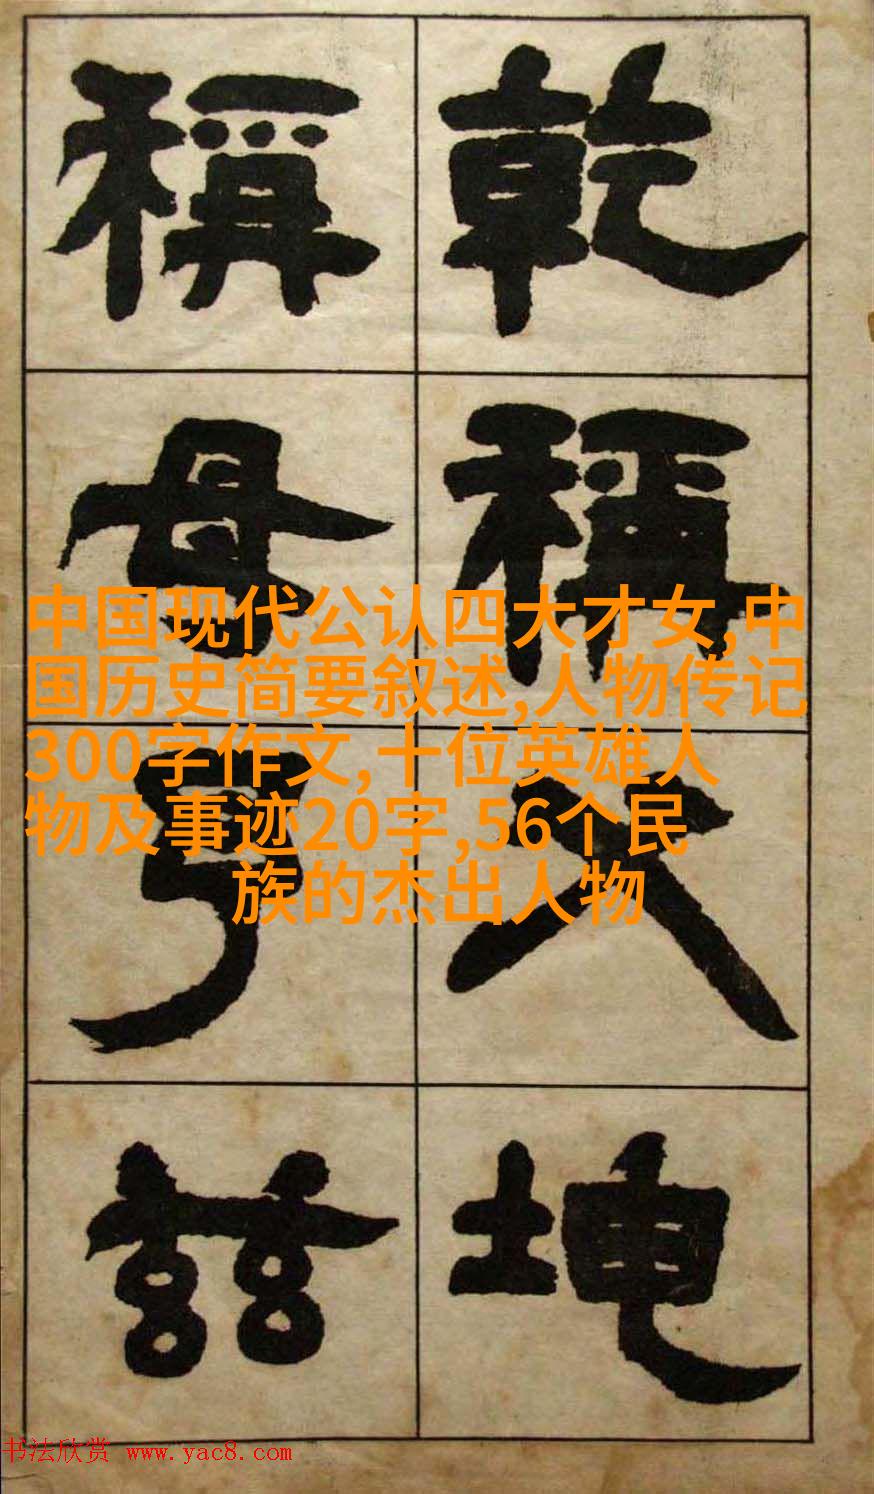 乾稱父坤
稱母予茲
中国现代公认四大才女,中
国历史简要叙述,人物传记
300字作文,十位英雄人
物及事迹20字,56个民
族的杰出人物
书法欣赏 www.yac8.com